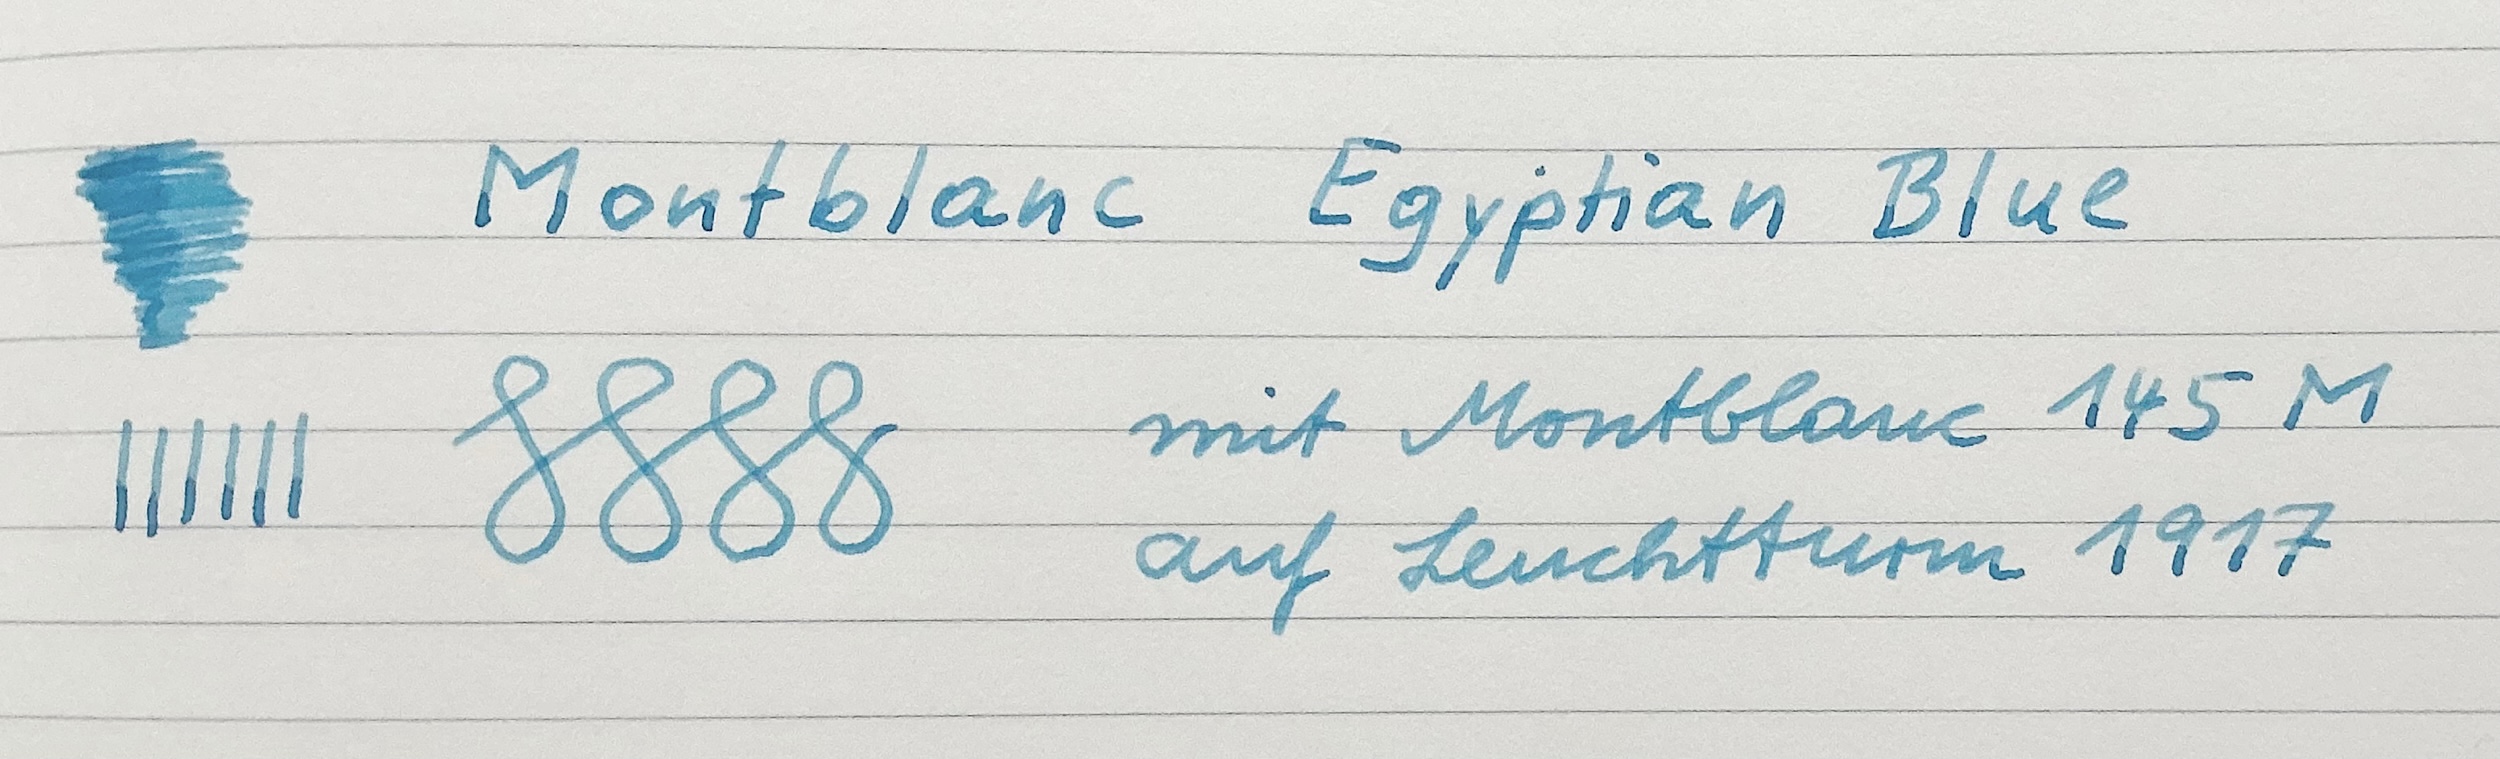 Montblanc Egyptian Blue
mit Montblanc 145 M
auf Leuchtturm 1917